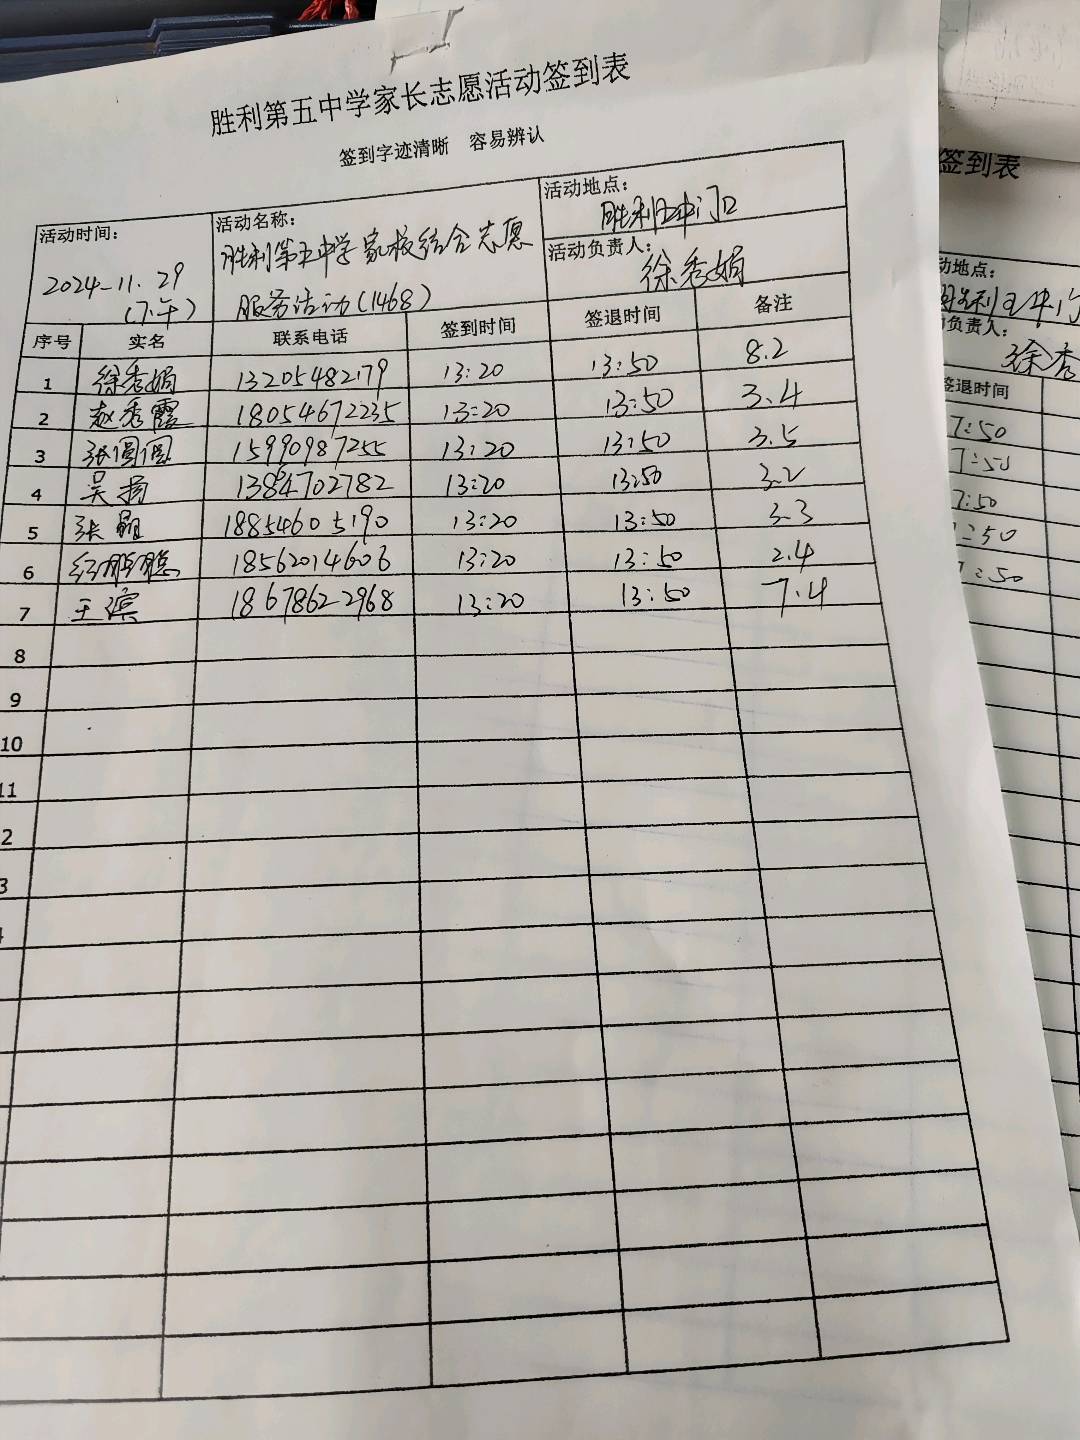 胜利第五中学家长志愿活动签到表
签到字迹清晰 容易辨认
活动时间：
2024-11.29
（下午）
活动名称：
胜利第五中学家校结合志愿
服务活动（1468）
活动地点：
胜利五中门口
活动负责人：
徐秀娟
序号 实名 联系电话 签到时间 签退时间 备注
1 徐秀娟 13205482179 13:20 13:50 8.2
2 赵秀霞 18054672235 13:20 13:50 3.4
3 张圆圆 15990987255 13:20 13:50 3.5
4 吴扬 702782 13:20 13:50 3.2
5 张 18854605190 13:20 13:50 3.3
6 18562014606 13:20 13:50 2.4
7 王滨 18678622968 13:20 13:50 7.4
8
9
10
11
2
3
签到表
动地点：
胜利五中门
负责人：
徐秀
签退时间
7:50
7:50
7:50
7:50
7:50